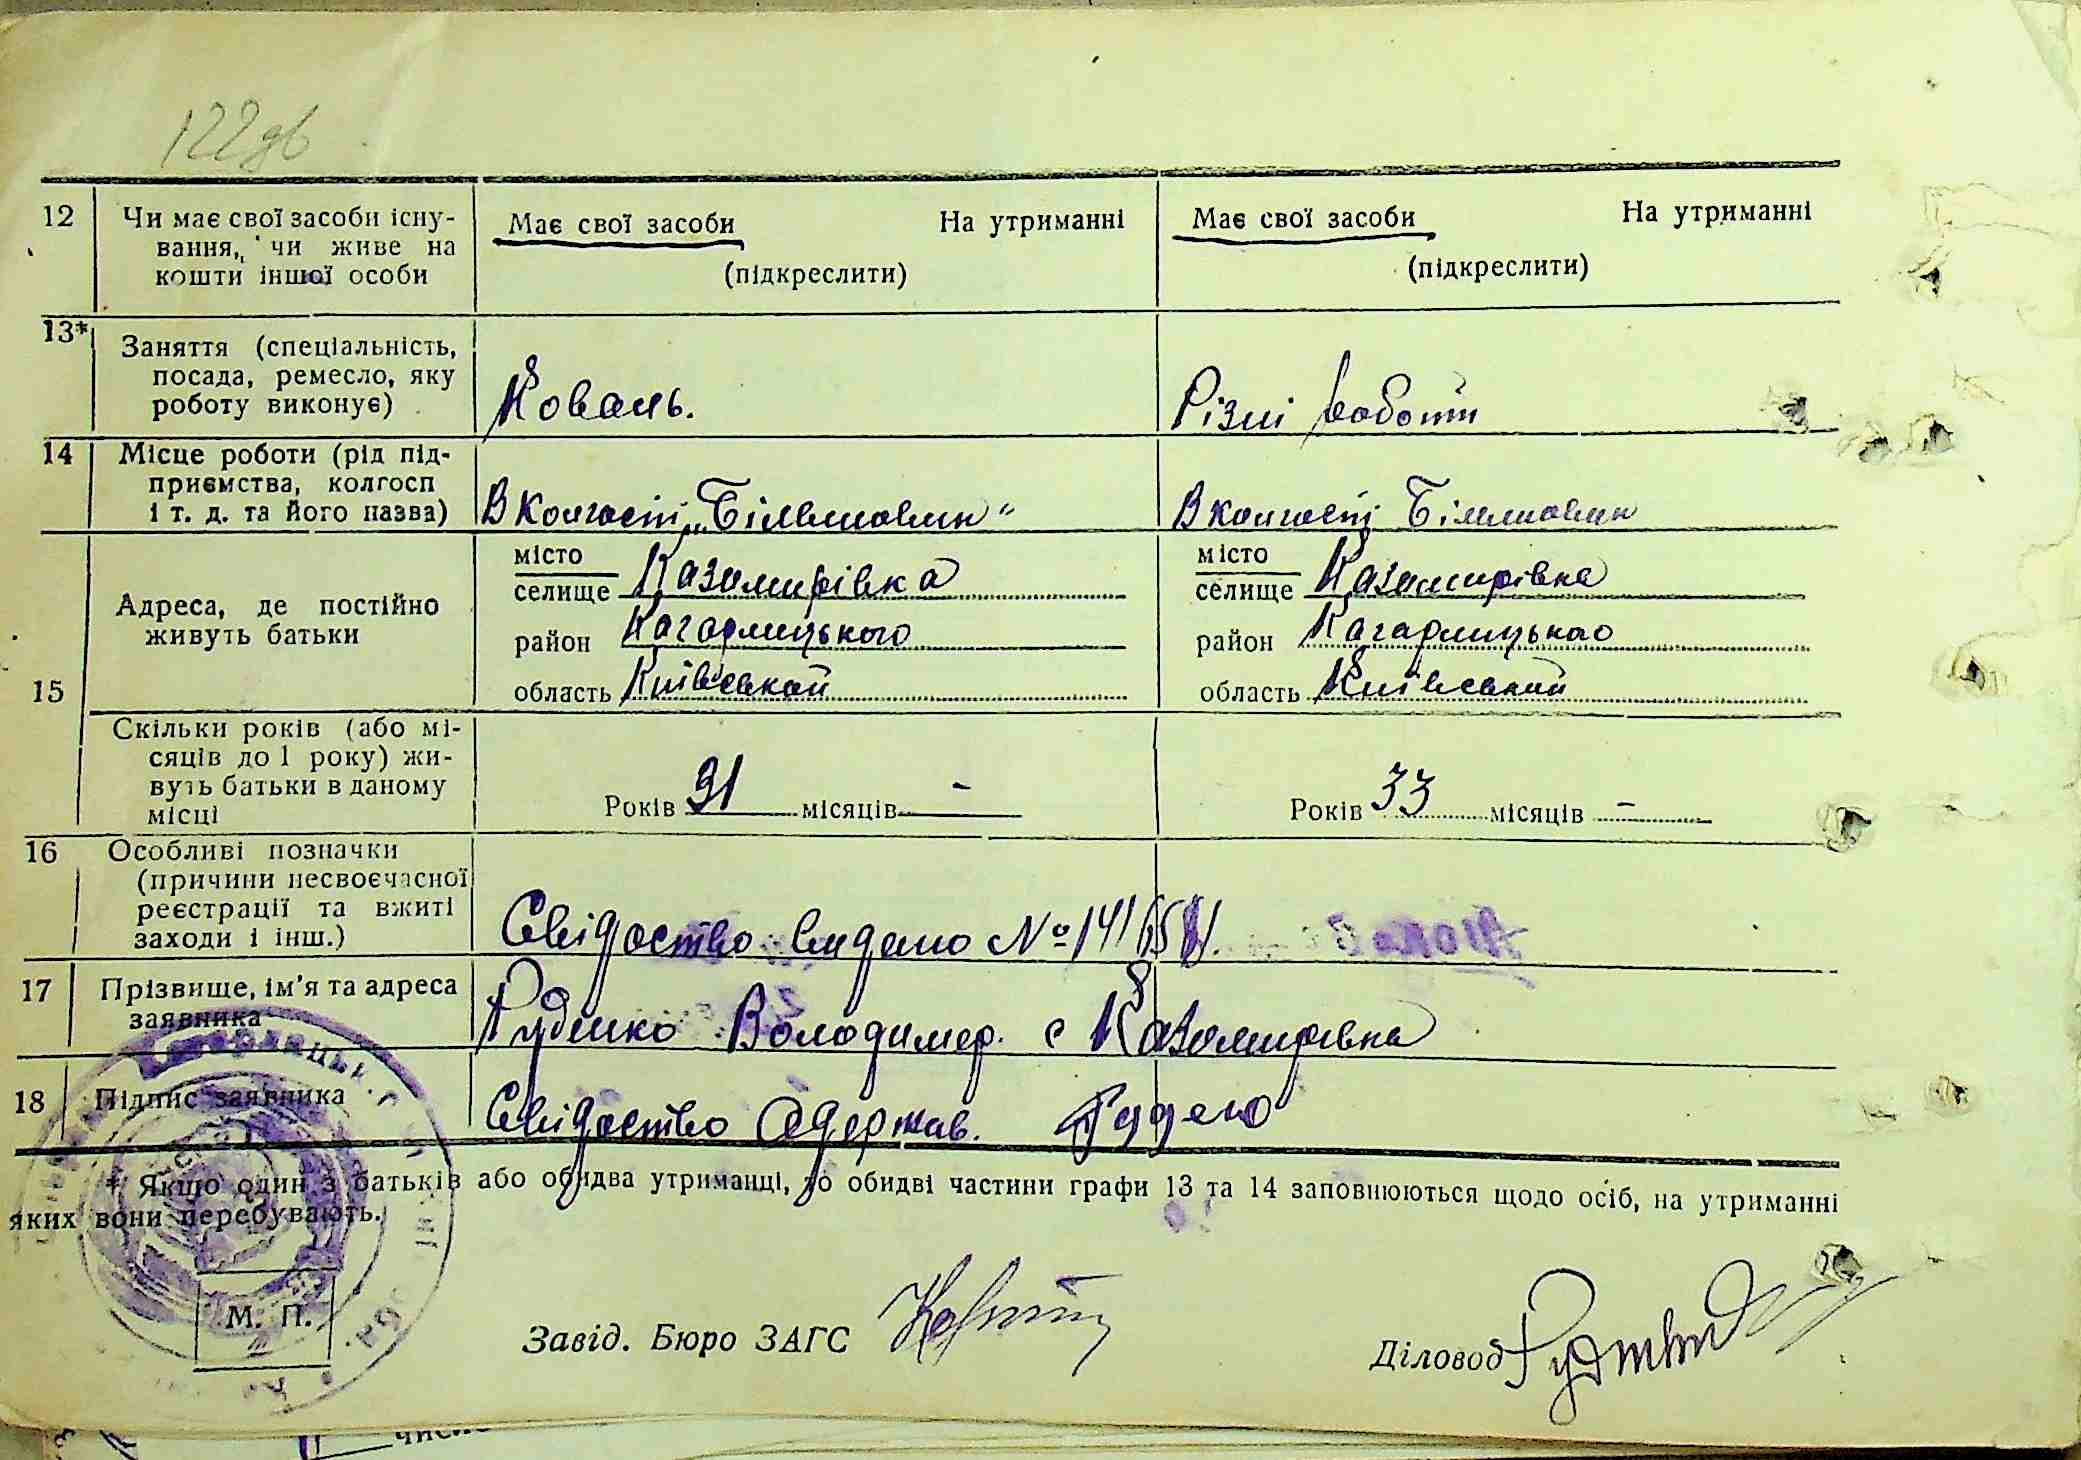 122зв
12 Чи має свої засоби існу- Має свої засоби На утриманні Має свої засоби На утриманні
вання, чи живе на
кошти іншої особи (підкреслити) (підкреслити)
13* Заняття (спеціальність,
посада, ремесло, яку
роботу виконує) Коваль. Різні роботи
14 Місце роботи (рід під-
приємства, колгосп
і т. д. та його назва) В колгоспі „Більшовик“ В колгоспі Більшовик
15 Адреса, де постійно
живуть батьки
місто місто
селище Казомирівка селище Казомирівка
район Кагарлицького район Кагарлицького
область Київської область Київський
Скільки років (або мі-
сяців до 1 року) жи-
вуть батьки в даному
місці Років 31 місяців - Років 33 місяців -
16 Особливі позначки
(причини несвоєчасної
реєстрації та вжиті
заходи і інш.) Свідоство видано №
17 Прізвище, ім'я та адреса
заявника Руденко Володимер. с Казомирівка
18 Підпис заявника Свідоство Одержав.
* Якщо один з батьків або обидва утриманці, то обидві частини графи 13 та 14 заповнюються щодо осіб, на утриманні
яких вони перебувають.
М. П.
Завід. Бюро ЗАГС
Діловод
число